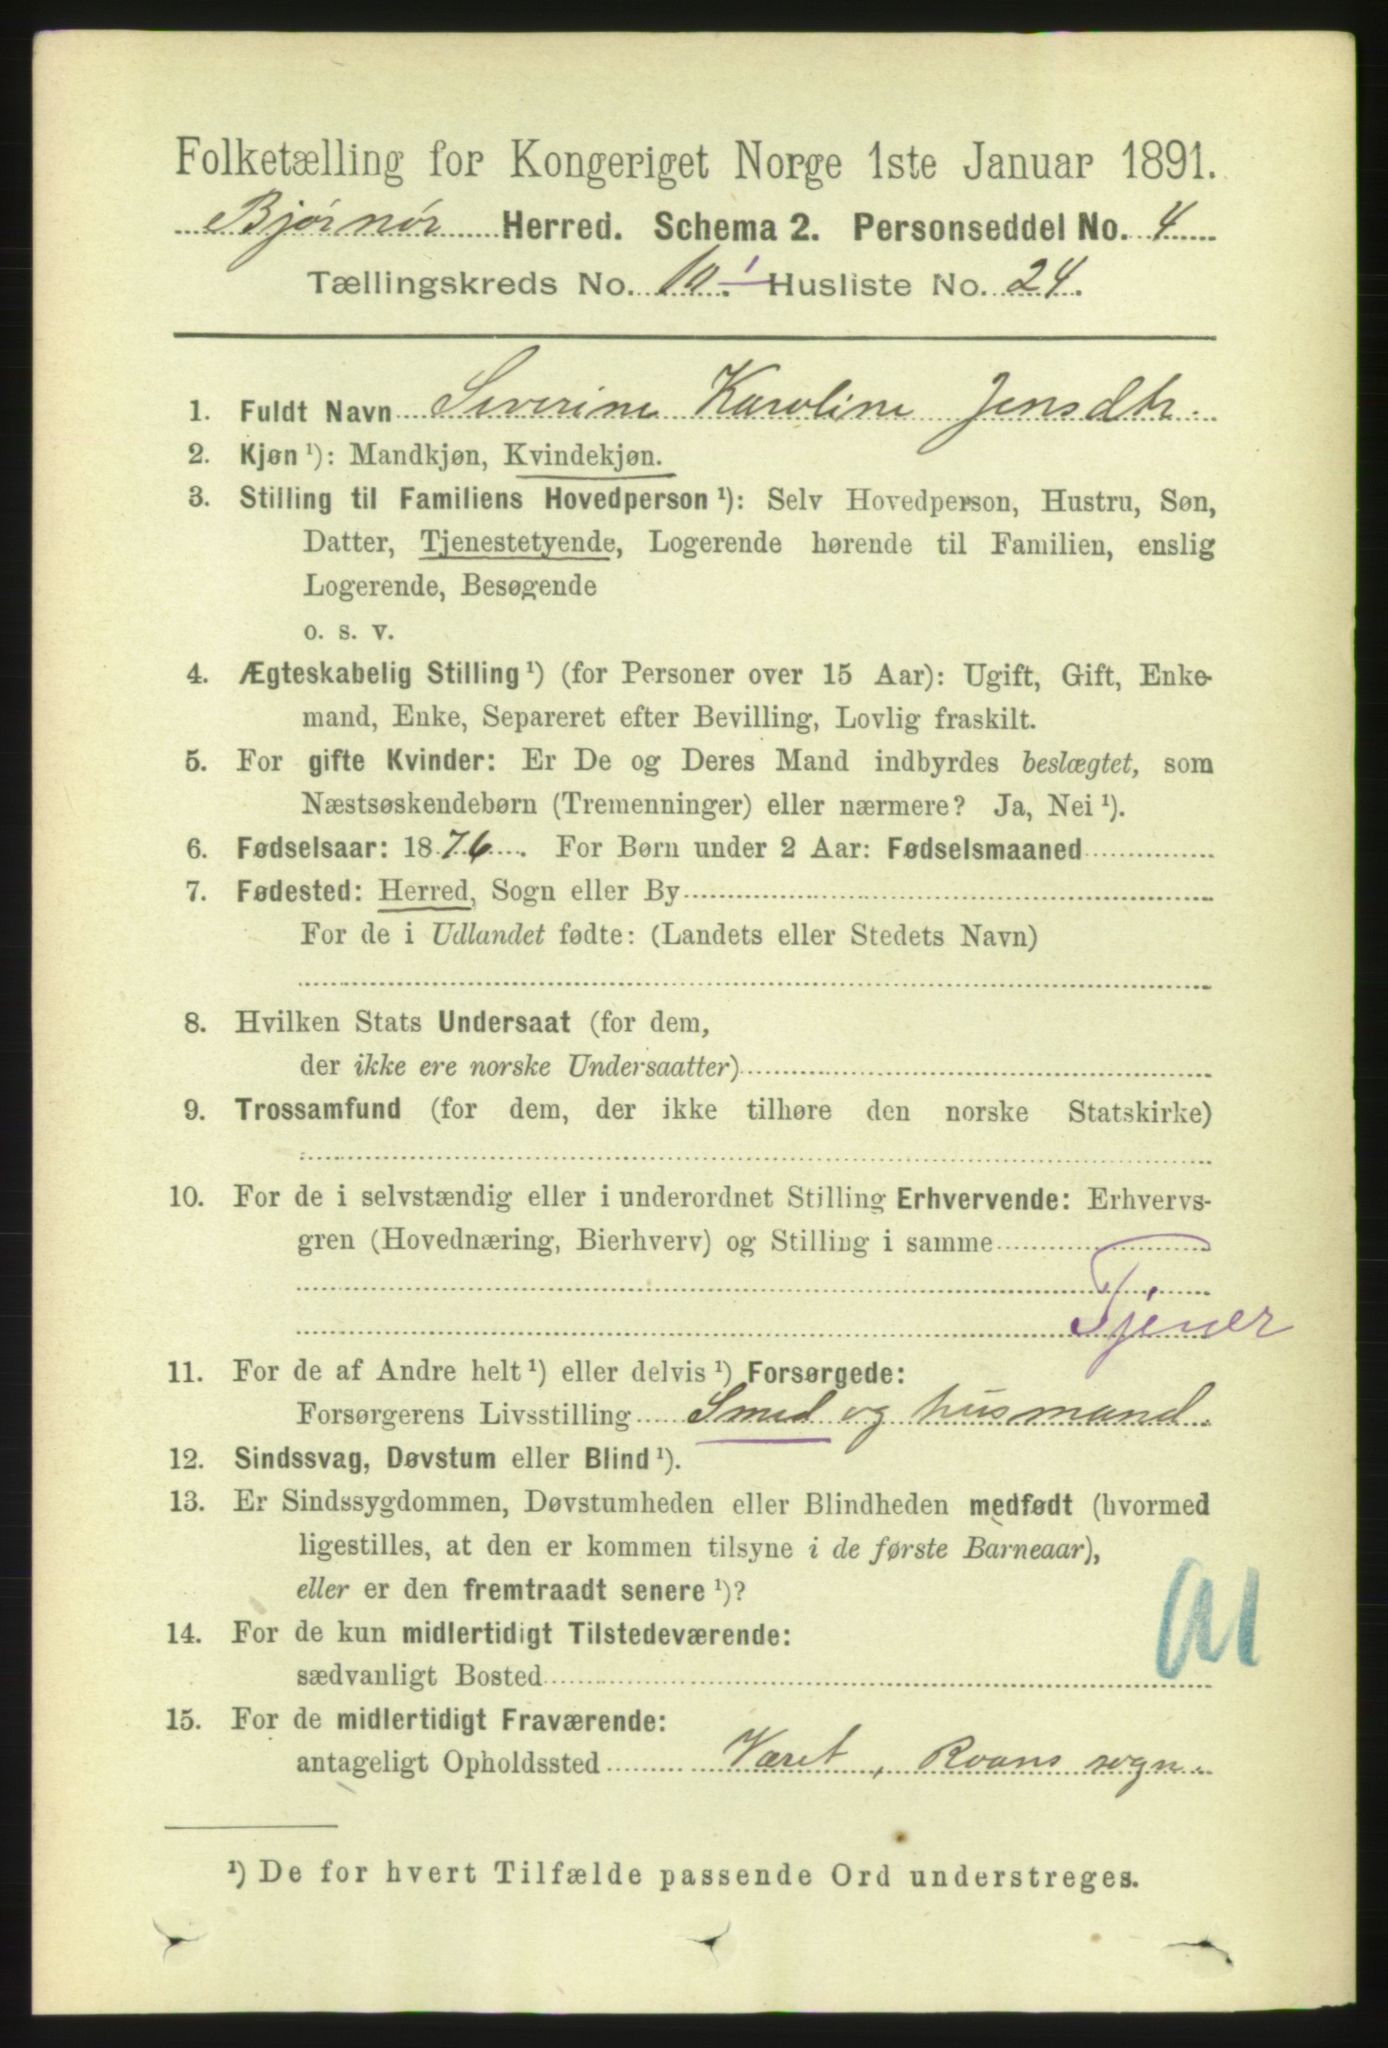 Folketælling for Kongeriget Norge 1ste Januar 1891.
Bjørnør Herred. Schema 2. Personseddel No. 4
Tællingskreds No. 10. Husliste No. 24.
1. Fuldt Navn Severine Karoline Jensdtr.
2. Kjøn ¹): Mandkjøn, Kvindekjøn.
3. Stilling til Familiens Hovedperson ¹): Selv Hovedperson, Hustru, Søn,
Datter, Tjenestetyende, Logerende hørende til Familien, enslig
Logerende, Besøgende
o. s. v.
4. Ægteskabelig Stilling ¹) (for Personer over 15 Aar): Ugift, Gift, Enke-
mand, Enke, Separeret efter Bevilling, Lovlig fraskilt.
5. For gifte Kvinder: Er De og Deres Mand indbyrdes beslægtet, som
Næstsøskendebørn (Tremenninger) eller nærmere? Ja, Nei ¹).
6. Fødselsaar: 1876. For Børn under 2 Aar: Fødselsmaaned
7. Fødested: Herred, Sogn eller By
For de i Udlandet fødte: (Landets eller Stedets Navn)
8. Hvilken Stats Undersaat (for dem,
der ikke ere norske Undersaatter)
9. Trossamfund (for dem, der ikke tilhøre den norske Statskirke)
10. For de i selvstændig eller i underordnet Stilling Erhvervende: Erhvervs-
gren (Hovednæring, Bierhverv) og Stilling i samme
Tjener
11. For de af Andre helt ¹) eller delvis ¹) Forsørgede:
Forsørgerens Livsstilling Smed og husmand.
12. Sindssvag, Døvstum eller Blind ¹).
13. Er Sindssygdommen, Døvstumheden eller Blindheden medfødt (hvormed
ligestilles, at den er kommen tilsyne i de første Barneaar),
eller er den fremtraadt senere ¹)?
14. For de kun midlertidigt Tilstedeværende:
sædvanligt Bosted
15. For de midlertidigt Fraværende:
antageligt Opholdssted Været, Roans sogn.
¹) De for hvert Tilfælde passende Ord understreges.